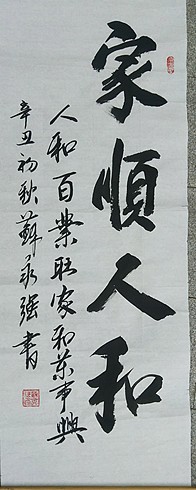 家順人和
人和百業旺家和萬事興
辛丑初秋蘇永強書